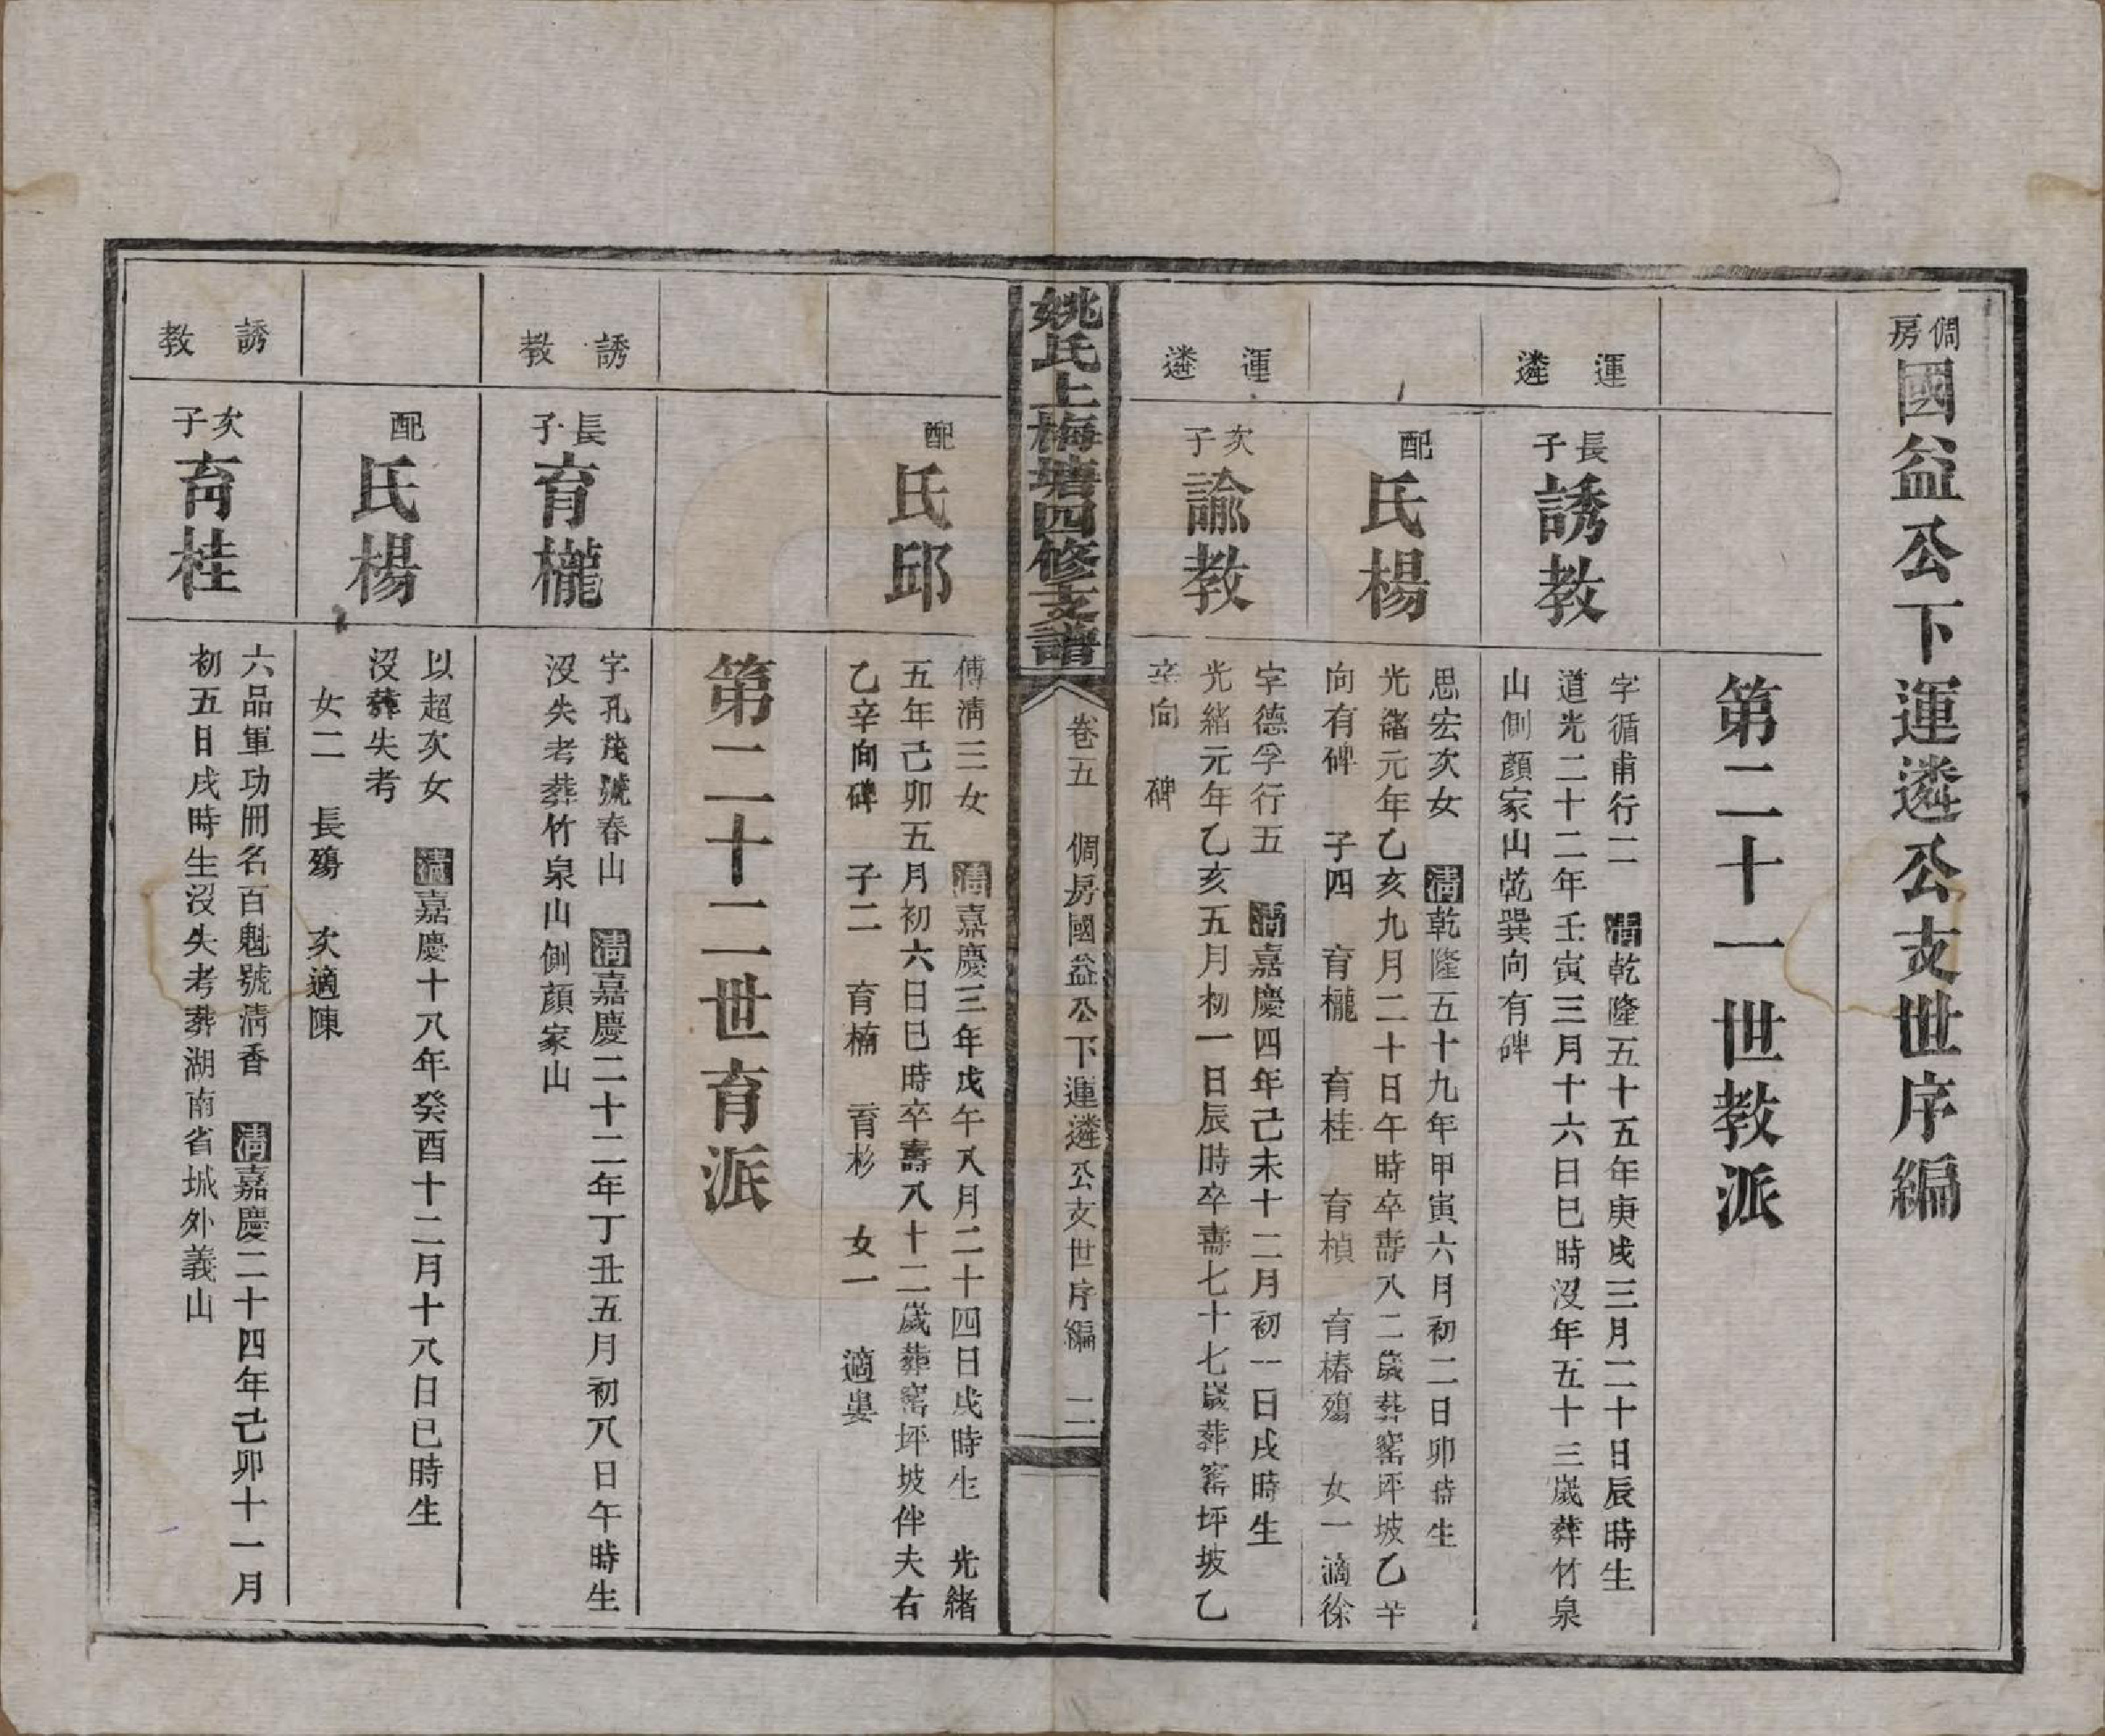 倜房國益公下運遴公支世序編
第二十一世教派
運遴
長子誘教
字循甫行二 清乾隆五十五年庚戌三月二十日辰時生
道光二十二年壬寅三月十六日巳時沒年五十三歲葬竹泉
山側顏家山乾巽向有碑
配氏楊
思宏次女 清乾隆五十九年甲寅六月初二日卯時生
光緒元年乙亥九月二十日午時卒壽八二歲葬窰坪坡乙辛
向有碑 子四 育櫳 育桂 育楨 育椿殤 女一 適徐
運遴
次子諭教
字德孚行五 清嘉慶四年己未十二月初一日戌時生
光緒元年乙亥五月初一日辰時卒壽七十七歲葬窰坪坡乙
辛向 碑
姚氏上梅塘四修支譜
卷五 倜房國益公下運遴公支世序編 二
配氏邱
傅清三女 清嘉慶三年戊午八月二十四日戌時生 光緒
五年己卯五月初六日巳時卒壽八十二歲葬窰坪坡伴夫右
乙辛向碑 子二 育楠 育杉 女一 適婁
第二十二世育派
誘教
長子育櫳
字孔茂號春山 清嘉慶二十二年丁丑五月初八日午時生
沒失考葬竹泉山側顏家山
配氏楊
以超次女 清嘉慶十八年癸酉十二月十八日巳時生
沒葬失考
女二 長殤 次適陳
誘教
次子育桂
六品軍功冊名百魁號清香 清嘉慶二十四年己卯十一月
初五日戌時生沒失考葬湖南省城外義山